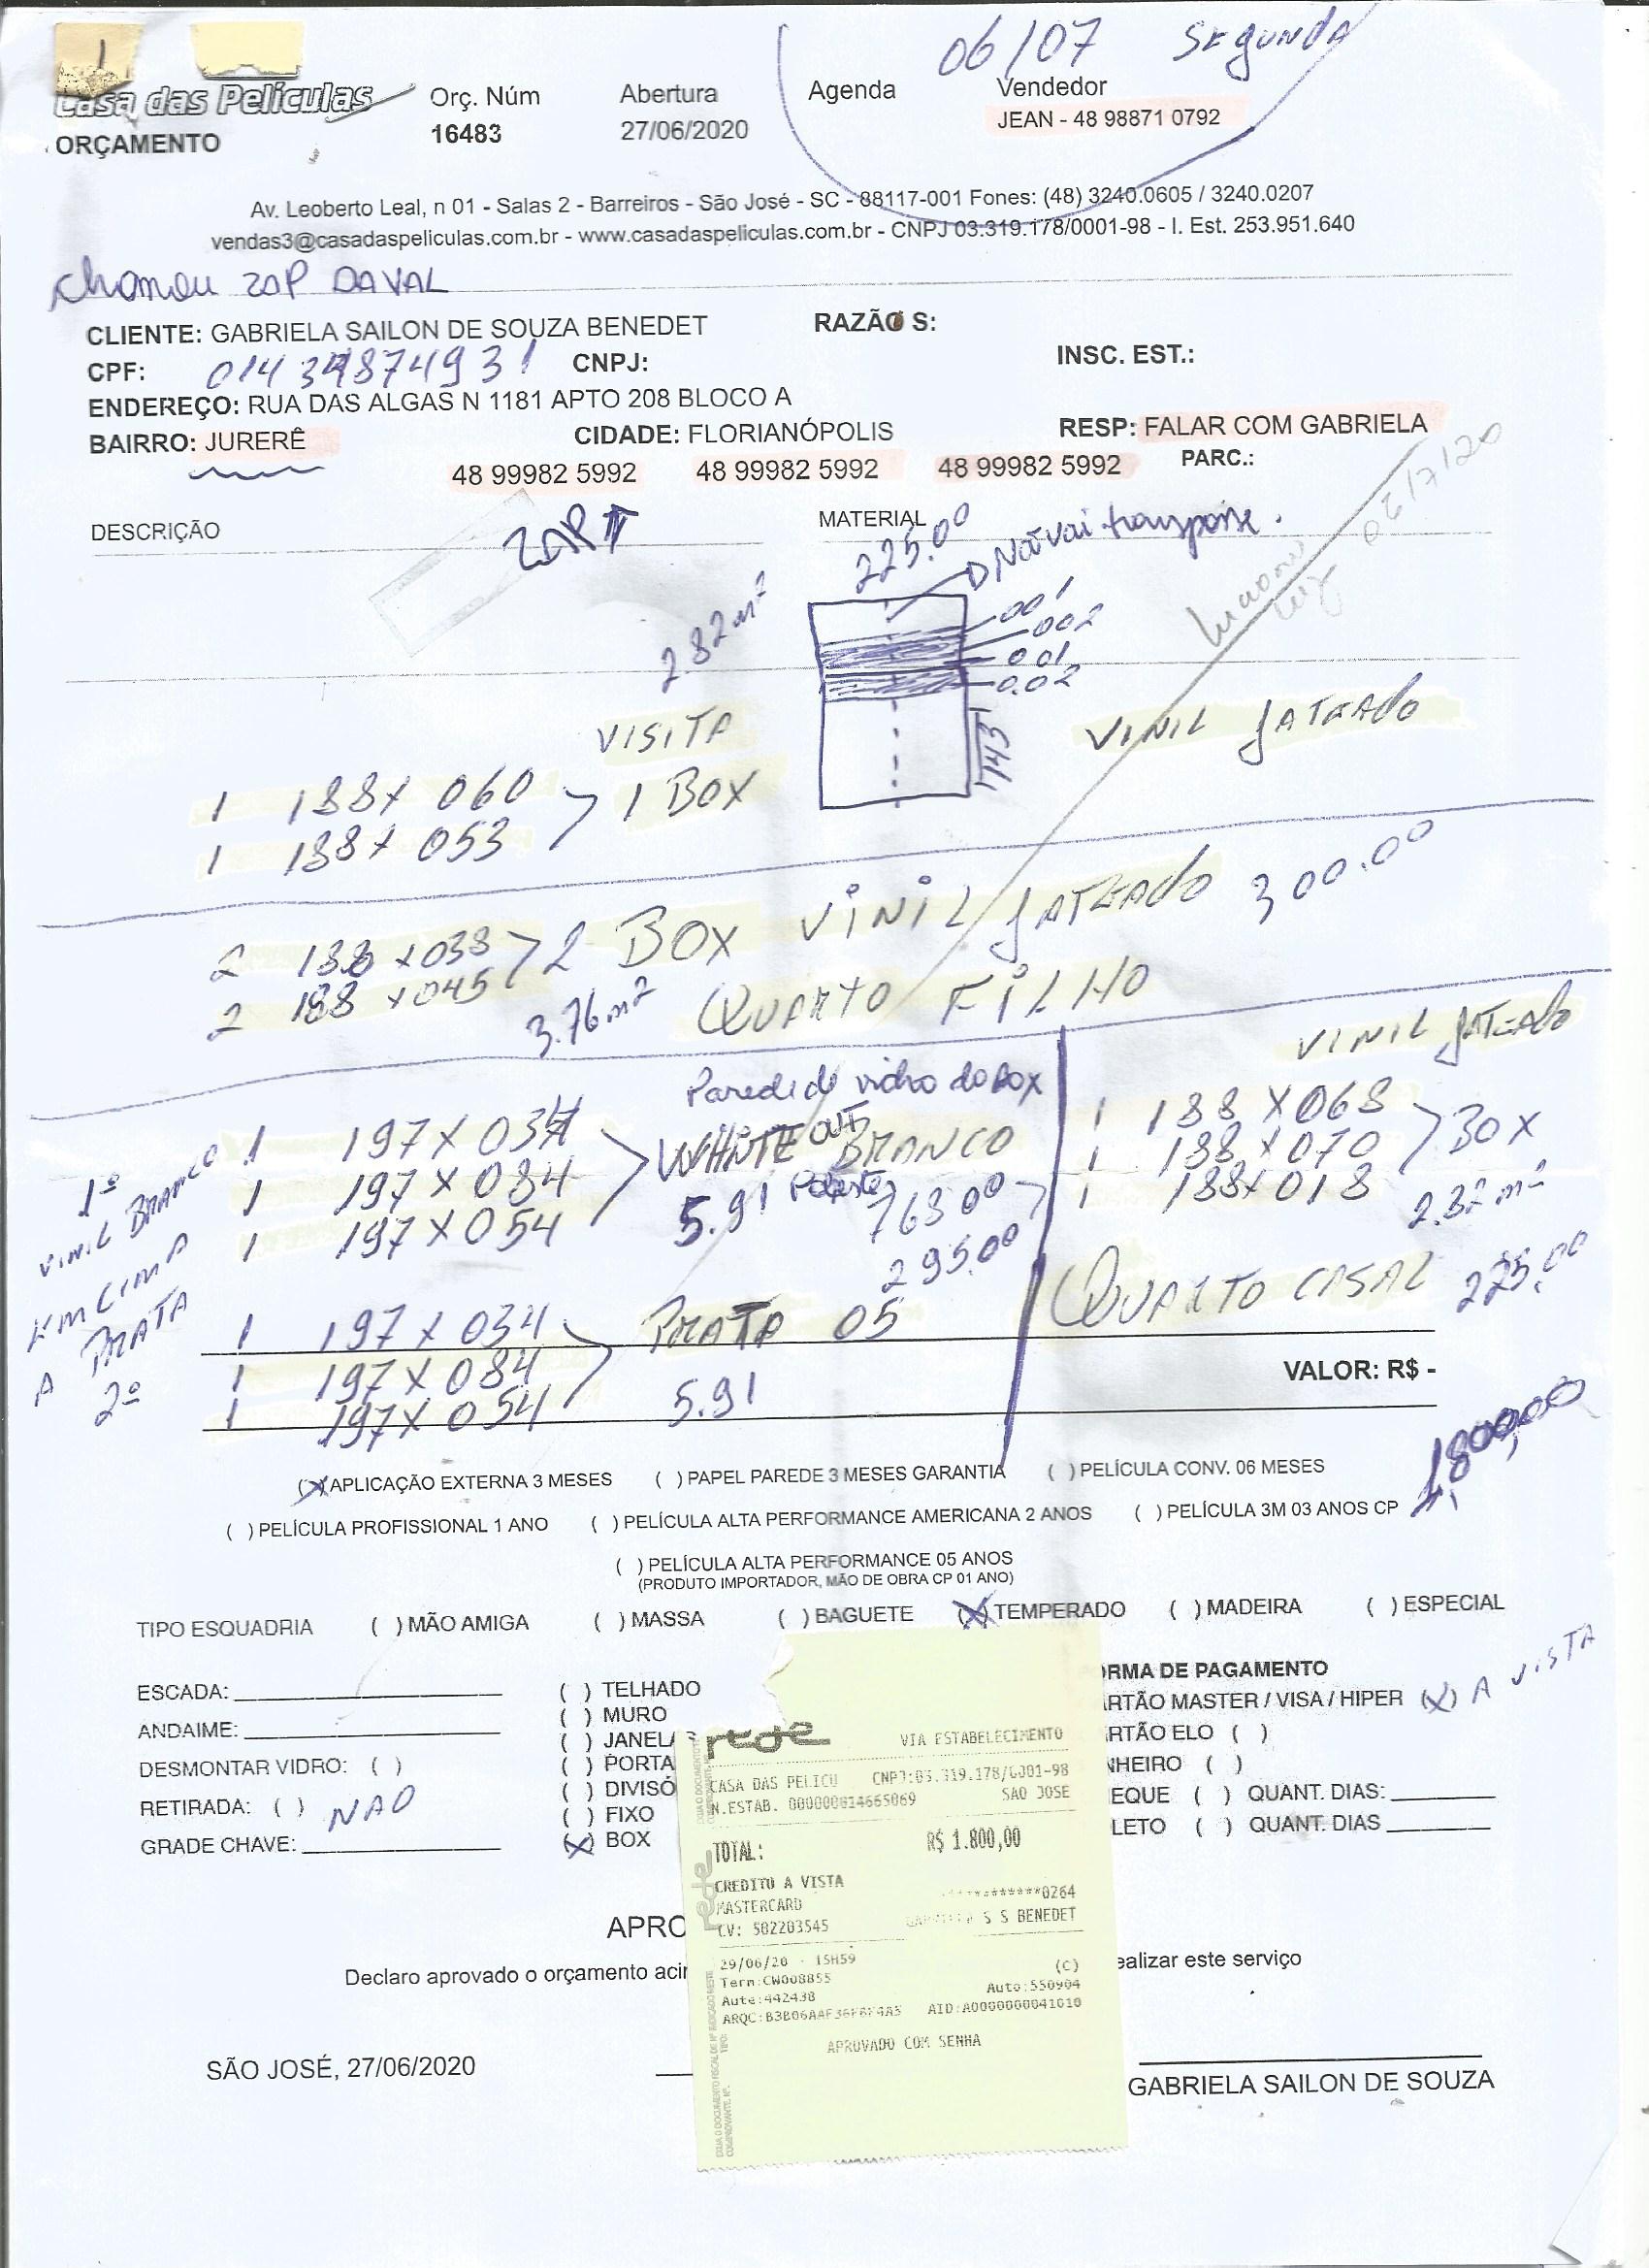 06/07 SEGUNDA
1
Casa das Películas
ORÇAMENTO
Orç. Núm
16483
Abertura
27/06/2020
Agenda
Vendedor
JEAN - 48 98871 0792
Av. Leoberto Leal, n 01 - Salas 2 - Barreiros - São José - SC - 88117-001 Fones: (48) 3240.0605 / 3240.0207
vendas3@casadaspeliculas.com.br - www.casadaspeliculas.com.br - CNPJ 03.319.178/0001-98 - I. Est. 253.951.640
chamou ZAP DAVAL
CLIENTE: GABRIELA SAILON DE SOUZA BENEDET RAZÃO S:
CPF: CNPJ: INSC. EST.:
ENDEREÇO: RUA DAS ALGAS N 1181 APTO 208 BLOCO A
BAIRRO: JURERÊ CIDADE: FLORIANÓPOLIS RESP: FALAR COM GABRIELA
48 99982 5992 48 99982 5992 48 99982 5992 PARC.:
DESCRIÇÃO ZAP MATERIAL
225.00
Não vai transpasse.
2.82 m²
001
002
0.01
0.02
143
VISITA
VINIL JATEADO
1 188 X 060
1 188 X 053
1 BOX
2 188 X 038
2 188 X 045
2 BOX VINIL JATEADO 300.00
3.76 m² QUARTO FILHO
Parede de vidro do Box
1 197 X 034
1 197 X 084
1 197 X 054
WHITE OUT BRANCO
5.91
763.00
295.00
VINIL JATEADO
1 188 X 068
1 188 X 070
1 188 X 018
BOX
2.82 m²
QUARTO CASAL 225.00
1º
VINIL BRANCO
EM CIMA
A PRATA
2º
1 197 X 034
1 197 X 084
1 197 X 054
PRATA 05
5.91
VALOR: R$ -
1.800,00
(X) APLICAÇÃO EXTERNA 3 MESES ( ) PAPEL PAREDE 3 MESES GARANTIA ( ) PELÍCULA CONV. 06 MESES
( ) PELÍCULA PROFISSIONAL 1 ANO ( ) PELÍCULA ALTA PERFORMANCE AMERICANA 2 ANOS ( ) PELÍCULA 3M 03 ANOS CP
( ) PELÍCULA ALTA PERFORMANCE 05 ANOS
(PRODUTO IMPORTADOR, MÃO DE OBRA CP 01 ANO)
TIPO ESQUADRIA ( ) MÃO AMIGA ( ) MASSA ( ) BAGUETE (X) TEMPERADO ( ) MADEIRA ( ) ESPECIAL
ESCADA:
ANDAIME:
DESMONTAR VIDRO: ( )
RETIRADA: ( ) NAO
GRADE CHAVE:
( ) TELHADO
( ) MURO
( ) JANELAS
( ) PORTA
( ) DIVISÓ
( ) FIXO
(X) BOX
ORMA DE PAGAMENTO
ARTÃO MASTER / VISA / HIPER (X) A VISTA
RTÃO ELO ( )
NHEIRO ( )
EQUE ( ) QUANT. DIAS:
LETO ( ) QUANT. DIAS
rede
VIA ESTABELECIMENTO
CASA DAS PELICU CNPJ:03.319.178/0001-98
N.ESTAB. 000000014665069 SAO JOSE
TOTAL: R$ 1.800,00
CREDITO A VISTA
MASTERCARD ************0264
CV: 582203545 GABRIELA S S BENEDET
29/06/20 - 15H59 (C)
Term:CW008855 Auto:550904
Aute:442438
AID:A0000000041010
APROVADO COM SENHA
APRO
Declaro aprovado o orçamento acim
ealizar este serviço
SÃO JOSÉ, 27/06/2020
GABRIELA SAILON DE SOUZA